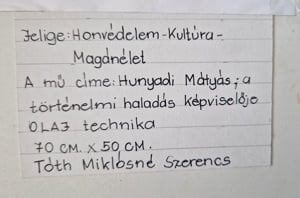 Jelige: Honvédelem-Kultúra-
Magánélet
A mű címe: Hunyadi Mátyás; a
történelmi haladás képviselője
OLAJ technika
70 CM. X 50 CM.
Tóth Miklósné Szerencs